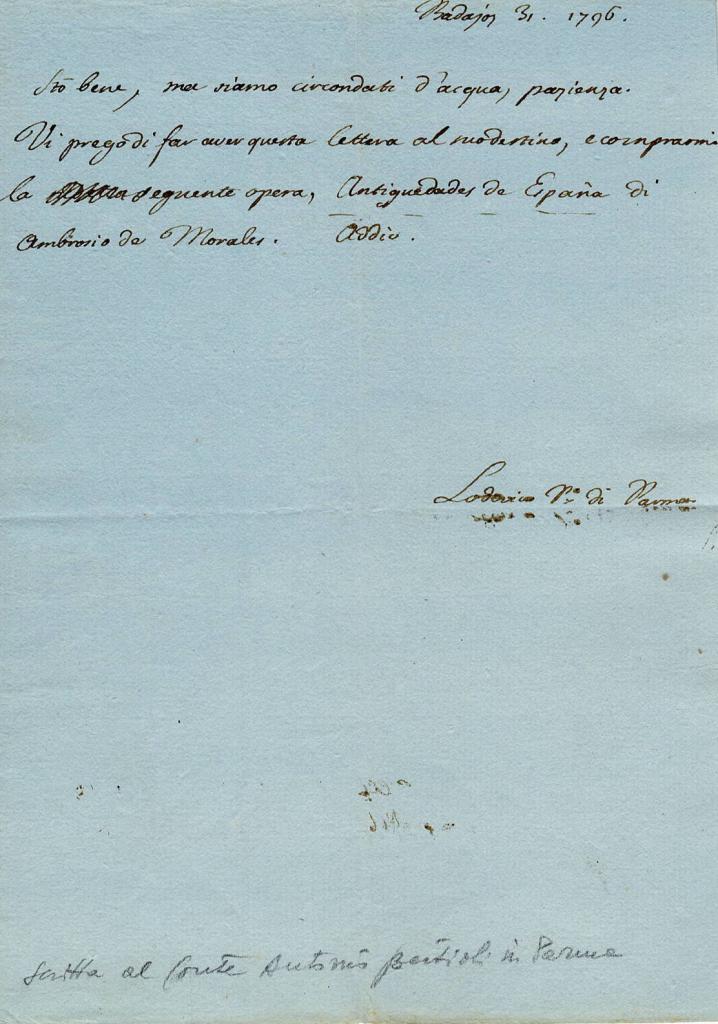 Badajoz 31. 1796.
Stò bene, ma siamo circondati d'acqua, pazienza.
Vi prego di far aver questa lettera al modestino, e comprarmi
la seguente opera, Antiguedades de España di
Ambrosio de Morales. Addio.
Lodovico Pe. di Parma
scritta al Conte Antonio Bertioli in Parma